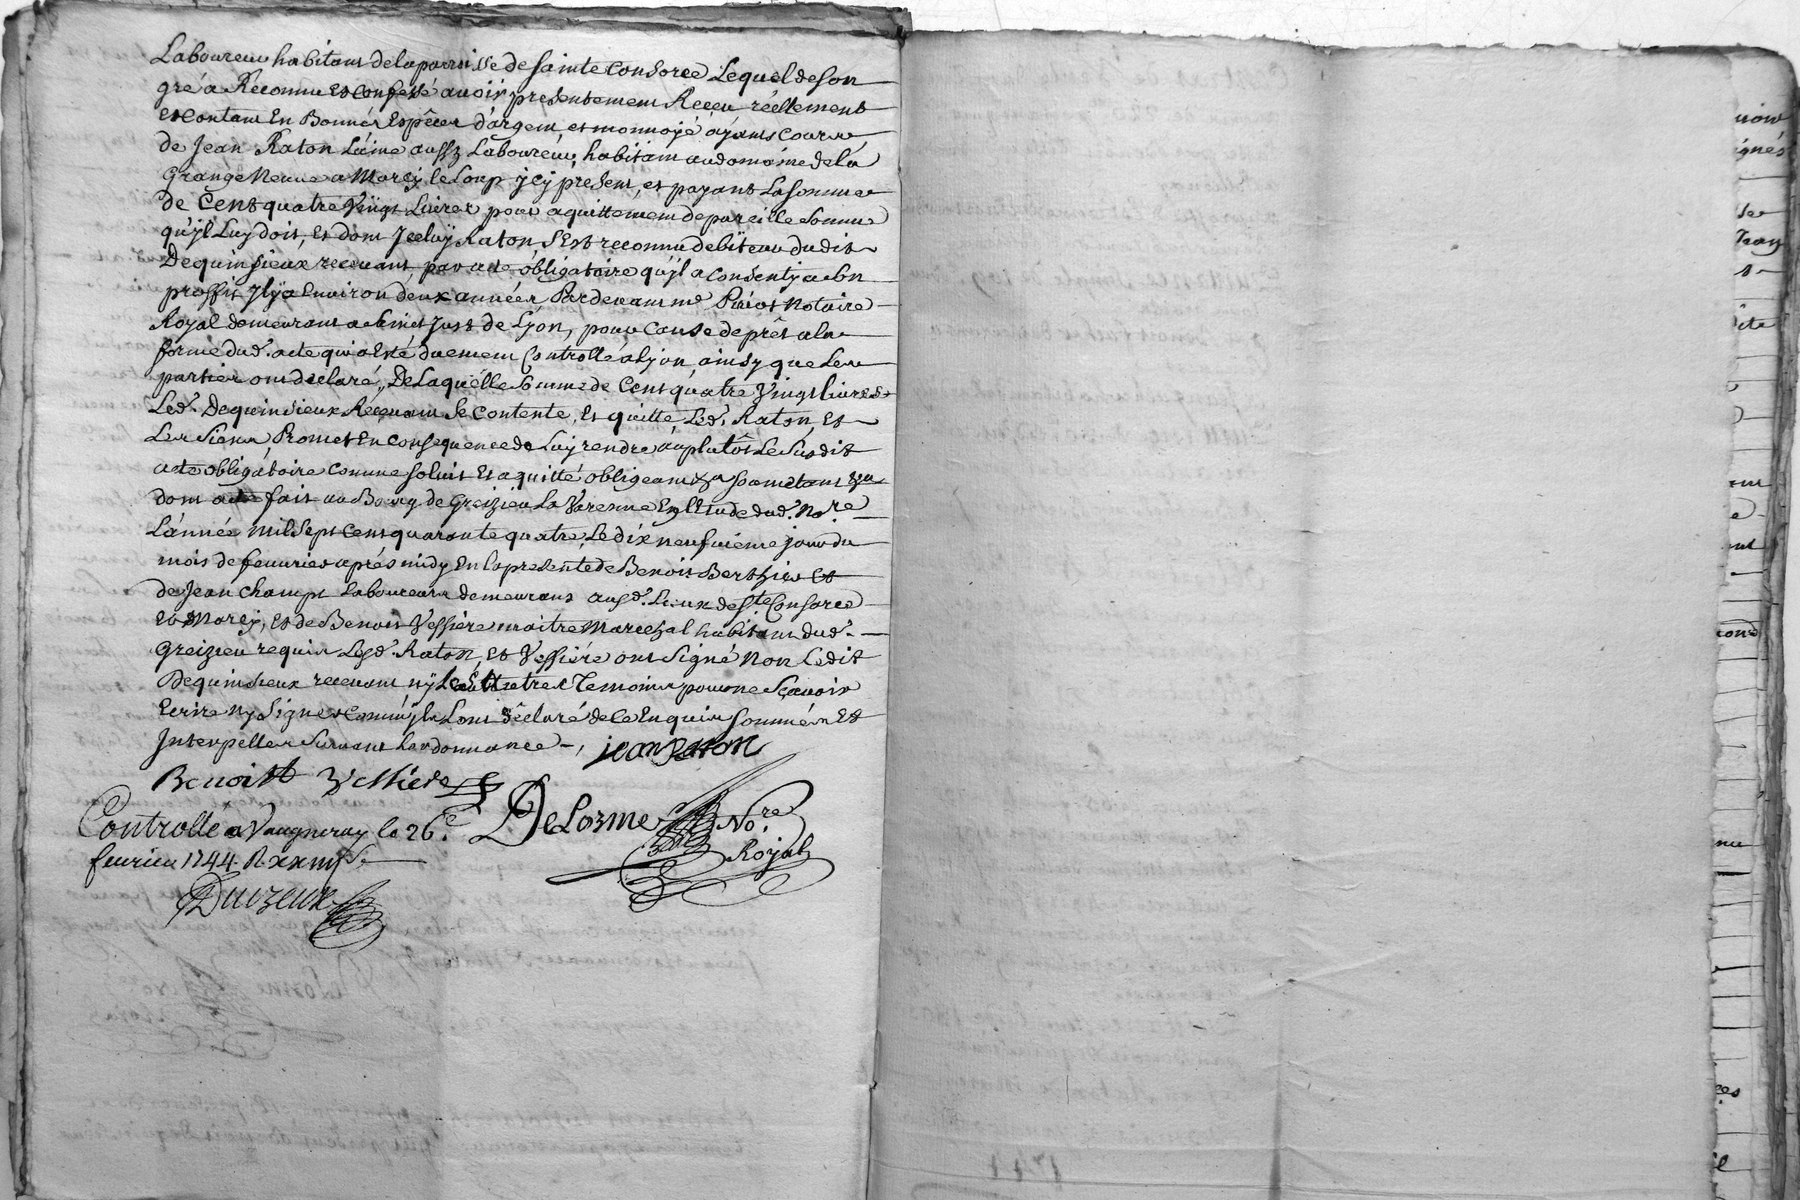 Laboureur habitant de la parroisse de sainte Consorce Lequel de son
gré a Reconnu et confessé avoir presentement Receu réellement
et contant En Bonnes Espêces d'argent et monnoyé ayants cours
de Jean Raton L'ainé aussy Laboureur habitant au domaine de la
Grange Neuve a Marcy le Loup ycy present, et payant La somme
de Cent quatre Vingt Livres pour aquittement de pareille somme
qu'jl Luy doit, et dont Jceluy Raton s'est reconnu debiteur dudit
Dequinsieux recevant par acte obligatoire qu'jl a consenty a son
proffit Jl y a Environ deux années Pardevant me Notaire
Royal demeurant a saint Just de Lyon, pour Cause de prêt a la
forme dud. acte qui a Esté duement Controllé a Lyon ainsy que Les
parties ont declaré, De Laquelle somme de Cent quatre Vingt livres
Led. Dequinsieux Recevant se contente, et quitte Led. Raton, et
Les siens Promet En consequence de Luy rendre au plutôt Le susdit
acte obligatoire comme solut et aquitté obligeant &a soumettant &a
dont acte fait au Bourg de Greizieu La Varenne En l'Etude dud. No.re
L'année mil sept cent quarante quatre, Le dix neufvieme jour du
mois de fevvrier aprés midy En la presente de Benoit Berthier et
de Jean Champt Laboureurs demeurans ausd. Lieux de Ste Consorce
et Marcy, et de Benoit Vessiére maitre Marechal habitant dud.
Greizieu requis Lesd. Raton, et Vessiére ont signé Non Ledit
Dequinsieux recevant ny Les Autres Temoins pour ne sçavoir
Ecrire ny signer comm'jls L'ont déclaré de ce Enquis sommés et
Interpelles suivant L'ordonnance,
jean Raton
Benoist Vessiere
DeLorme No.re
Royal
Controllé a Vaugneray le 26e
fevrier 1744 R